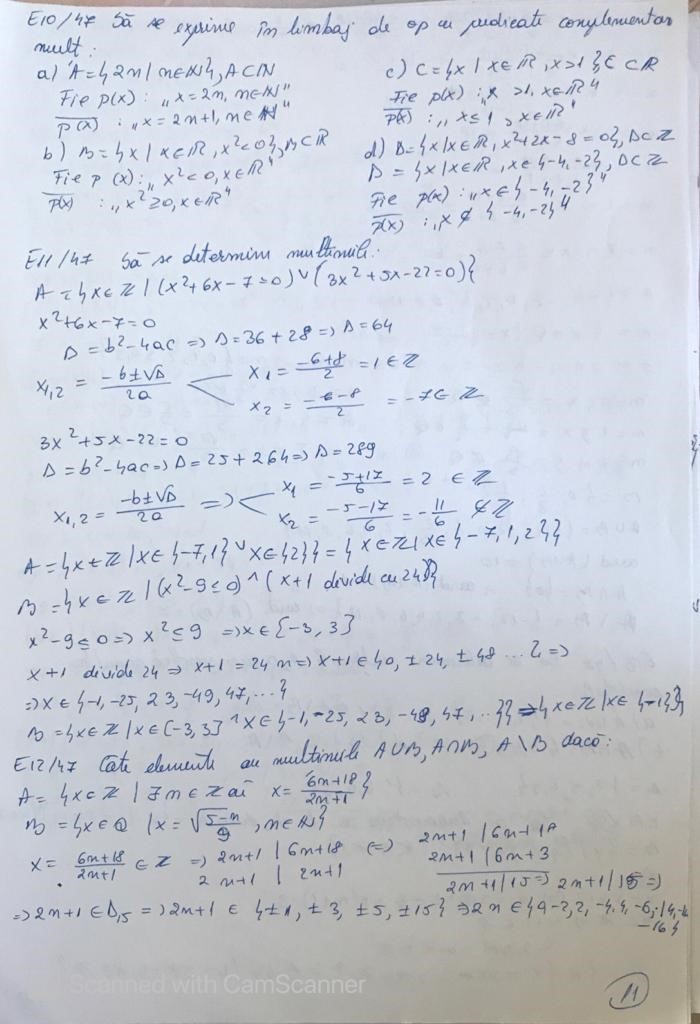 E10/47 Să se exprime în limbaj de op cu predicate complementar
mult:
a) A = {2n | n∈N}, A⊂N
Fie p(x): „x = 2n, n∈N"
p̅(̅x̅)̅ : „x = 2n+1, n∈N"
b) B = {x | x∈R, x²<0}, B⊂R
Fie p(x): „x²<0, x∈R"
p̅(̅x̅)̅ : „x²≥0, x∈R"
c) C = {x | x∈R, x>1}, C⊂R
Fie p(x): „x>1, x∈R"
p̅(̅x̅)̅ : „x≤1, x∈R"
d) D = {x | x∈R, x²+2x-8=0}, D⊂Z
D = {x | x∈R, x∈{-4,-2}, D⊂Z
Fie p(x): „x∈{-4,-2}"
p̅(̅x̅)̅ : „x∉{-4,-2}"
E11/47 Să se determine mulțimile:
A = {x∈Z | (x²+6x-7=0) ∨ (3x²+5x-22=0)}
x²+6x-7=0
Δ = b²-4ac => Δ = 36+28 => Δ = 64
x₁,₂ = (-b±√Δ)/2a
x₁ = (-6+8)/2 = 1∈Z
x₂ = (-6-8)/2 = -7∈Z
3x²+5x-22=0
Δ = b²-4ac => Δ = 25+264 => Δ = 289
x₁,₂ = (-b±√Δ)/2a =>
x₁ = (-5+17)/6 = 2 ∈Z
x₂ = (-5-17)/6 = -11/6 ∉Z
A = {x∈Z | x∈{-7,1} ∨ x∈{2}} = {x∈Z | x∈{-7,1,2}}
B = {x∈Z | (x²-9≤0) ^ (x+1 divide cu 24)}
x²-9≤0 => x²≤9 => x∈[-3,3]
x+1 divide 24 => x+1 = 24n => x+1∈{0, ±24, ±48 ...} =>
=> x∈{-1, -25, 23, -49, 47, ...}
B = {x∈Z | x∈[-3,3] ^ x∈{-1,-25, 23, -49, 47, ...}} => {x∈Z | x∈{-1}}
E12/47 Câte elemente au mulțimile A∪B, A∩B, A\B dacă:
A = {x∈Z | ∃n∈Z aî x = (6n+18)/(2n+1)}
B = {x∈Q | x = √((5-n)/9), n∈N}
x = (6n+18)/(2n+1) ∈Z => 2n+1 | 6n+18 (=) 2n+1 | 6n+18
2n+1 | 2n+1 2n+1 | 6n+3
2n+1 | 15 => 2n+1 | 15 =>
=> 2n+1∈D₁₅ => 2n+1 ∈ {±1, ±3, ±5, ±15} => 2n∈
-16}
11
Scanned with CamScanner